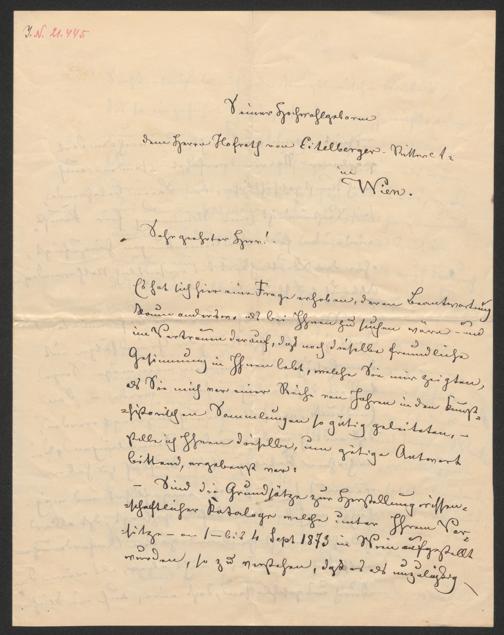 I.N. 21.445
Seiner Hochwohlgeboren
dem Herrn Hofrath von Eitelberger. Ritter etc
in
Wien.
Sehr geehrter Herr!
Es hat sich hier eine Frage erhoben, deren Beantwortung
kaum anderswo als bei Ihnen zu suchen wäre – und
im Vertrauen darauf, daß noch dieselbe freundliche
Gesinnung in Ihnen lebt, welche Sie mir zeigten,
als Sie mich vor einer Reihe von Jahren in den kunst
=historischen Sammlungen so gütig geleiteten, –
stelle ich Ihnen dieselbe, um gütige Antwort
bittend, ergebenst vor:
– Sind die Grundsätze zur Herstellung wissen=
=schaftlicher Kataloge welche unter Ihrem Vor=
=sitze – am 1 – bis 4 Sept 1873 in Wien aufgestellt
wurden, so zu verstehen, daß es als unzulässig